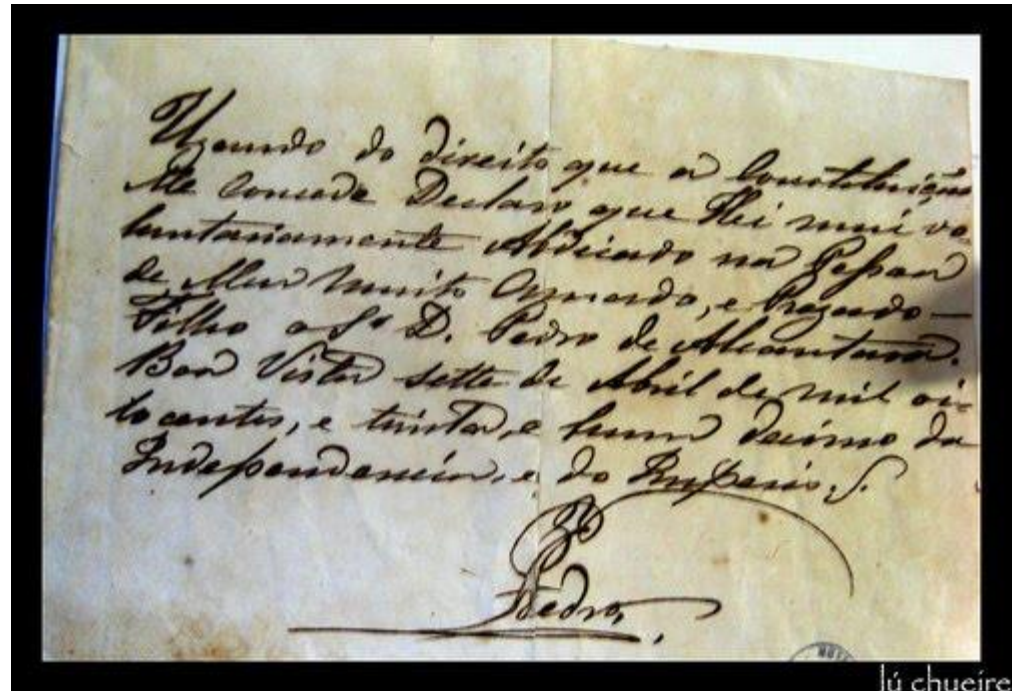 Uzando do direito que a Constituição
Me concede Declaro que Hei mui vo-
luntariamente Abdicado na Pessoa
de Meu muito Amado, e Prezado
Filho o Sr. D. Pedro de Alcantara.
Boa Vista sette de Abril de mil oi-
to centos, e trinta, e hum decimo da
Independencia, e do Imperio.
Pedro
lú chueire